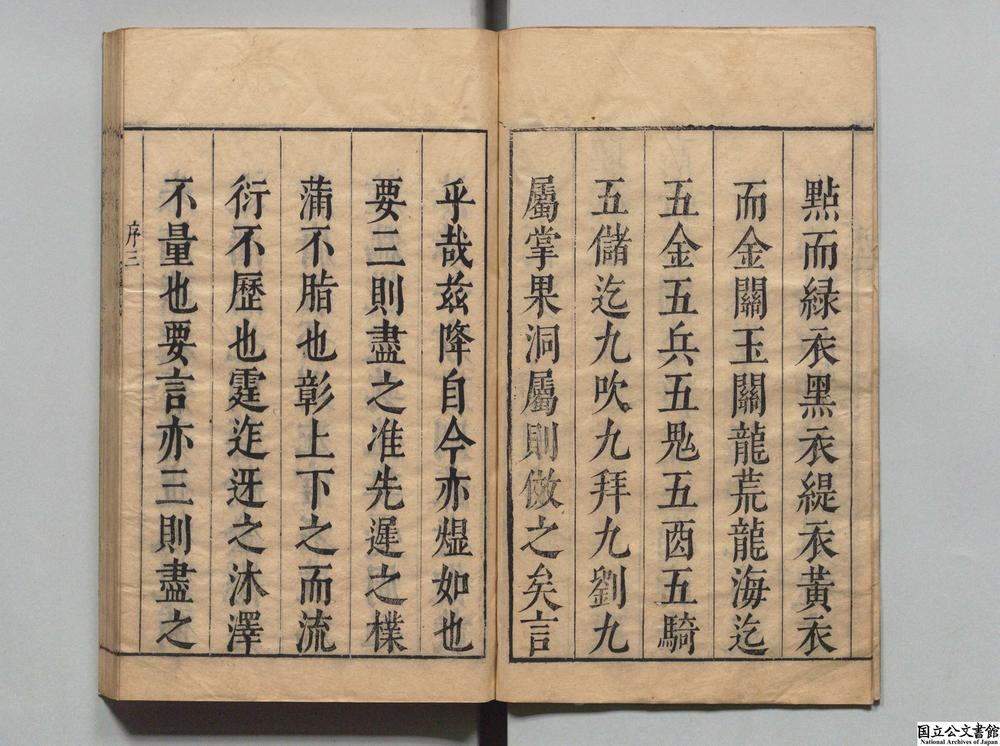 點而綠衣黑衣緹衣黃衣
而金關玉關龍荒龍海迄
五金五兵五鬼五酉五騎
五儲迄九吹九拜九劉九
屬掌果洞屬則倣之矣言
乎哉茲降自今亦熅如也
要三則盡之准先遲之樸
蒲不脂也彰上下之而流
衍不歷也霆迮迓之沐澤
不量也要言亦三則盡之
序三
国立公文書館
National Archives of Japan